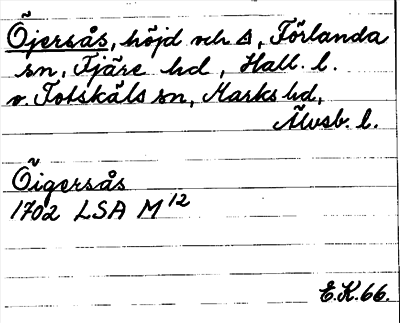 Öjersås, höjd och △, Förlanda
sn, Fjäre hd, Hall. l.
v. Fotskäls sn, Marks hd,
Älvsb. l.
Öigersås
1702 LSA M 12
E.K. 66.